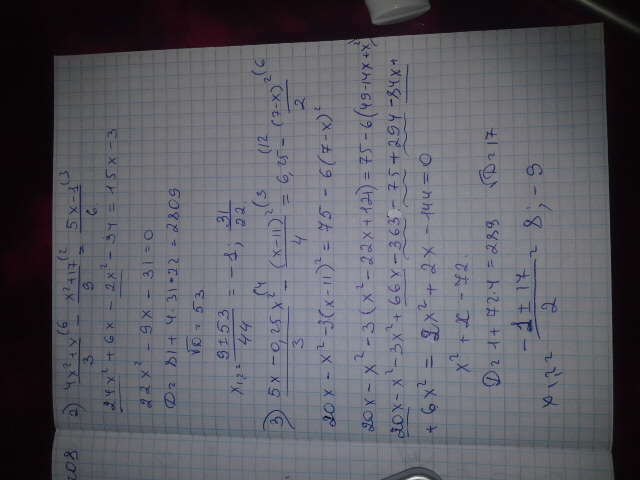 208
2) (4x²+x)/3 (6 - (x²+17)/9 (2 = (5x-1)/6 (3
24x² + 6x - 2x² - 34 = 15x - 3
22x² - 9x - 31 = 0
D = 81 + 4·31·22 = 2809
√D = 53
x₁,₂ = (9±53)/44 = -1; 31/22
3) (5x - 0,25x²)/3 (4 - (x-11)²/4 (3 = 6,25 (12 - (7-x)²/2 (6
20x - x² - 3(x-11)² = 75 - 6(7-x)²
20x - x² - 3(x² - 22x + 121) = 75 - 6(49 - 14x + x²)
20x - x² - 3x² + 66x - 363 - 75 + 294 - 84x +
+ 6x² = 2x² + 2x - 144 = 0
x² + x - 72
D = 1 + 72·4 = 289 √D = 17
x₁,₂ = (-1±17)/2 = 8; -9